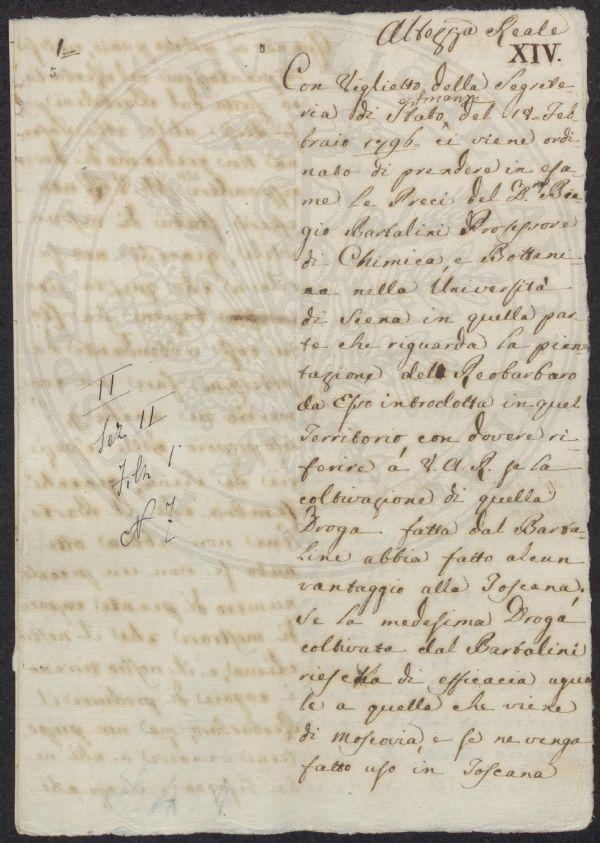 1
5
Altezza Reale
XIV.
Con Viglietto della Segrete-
ria di Stato del 18. Feb
braio 1796. ci viene ordi
nato di prendere in esa-
me le Preci del D.r Bia
gio Bartalini Professore
di Chimica, e Bottani-
ca nella Università
di Siena in quella par
te che riguarda la pian
tazione del Reobarbaro
da Esso introdotta in quel
Territorio, con dovere ri-
ferire à V.A.R. se la
coltivazione di quella
Droga fatta dal Barta-
lini abbia fatto alcun
vantaggio alla Toscana,
Se la medesima Droga
coltivata dal Bartalini
riesca di efficacia ugua
le a quella che viene
di Moscovia, e se ne venga
fatto uso in Toscana
II
Sez II
Filz 1.
N 7